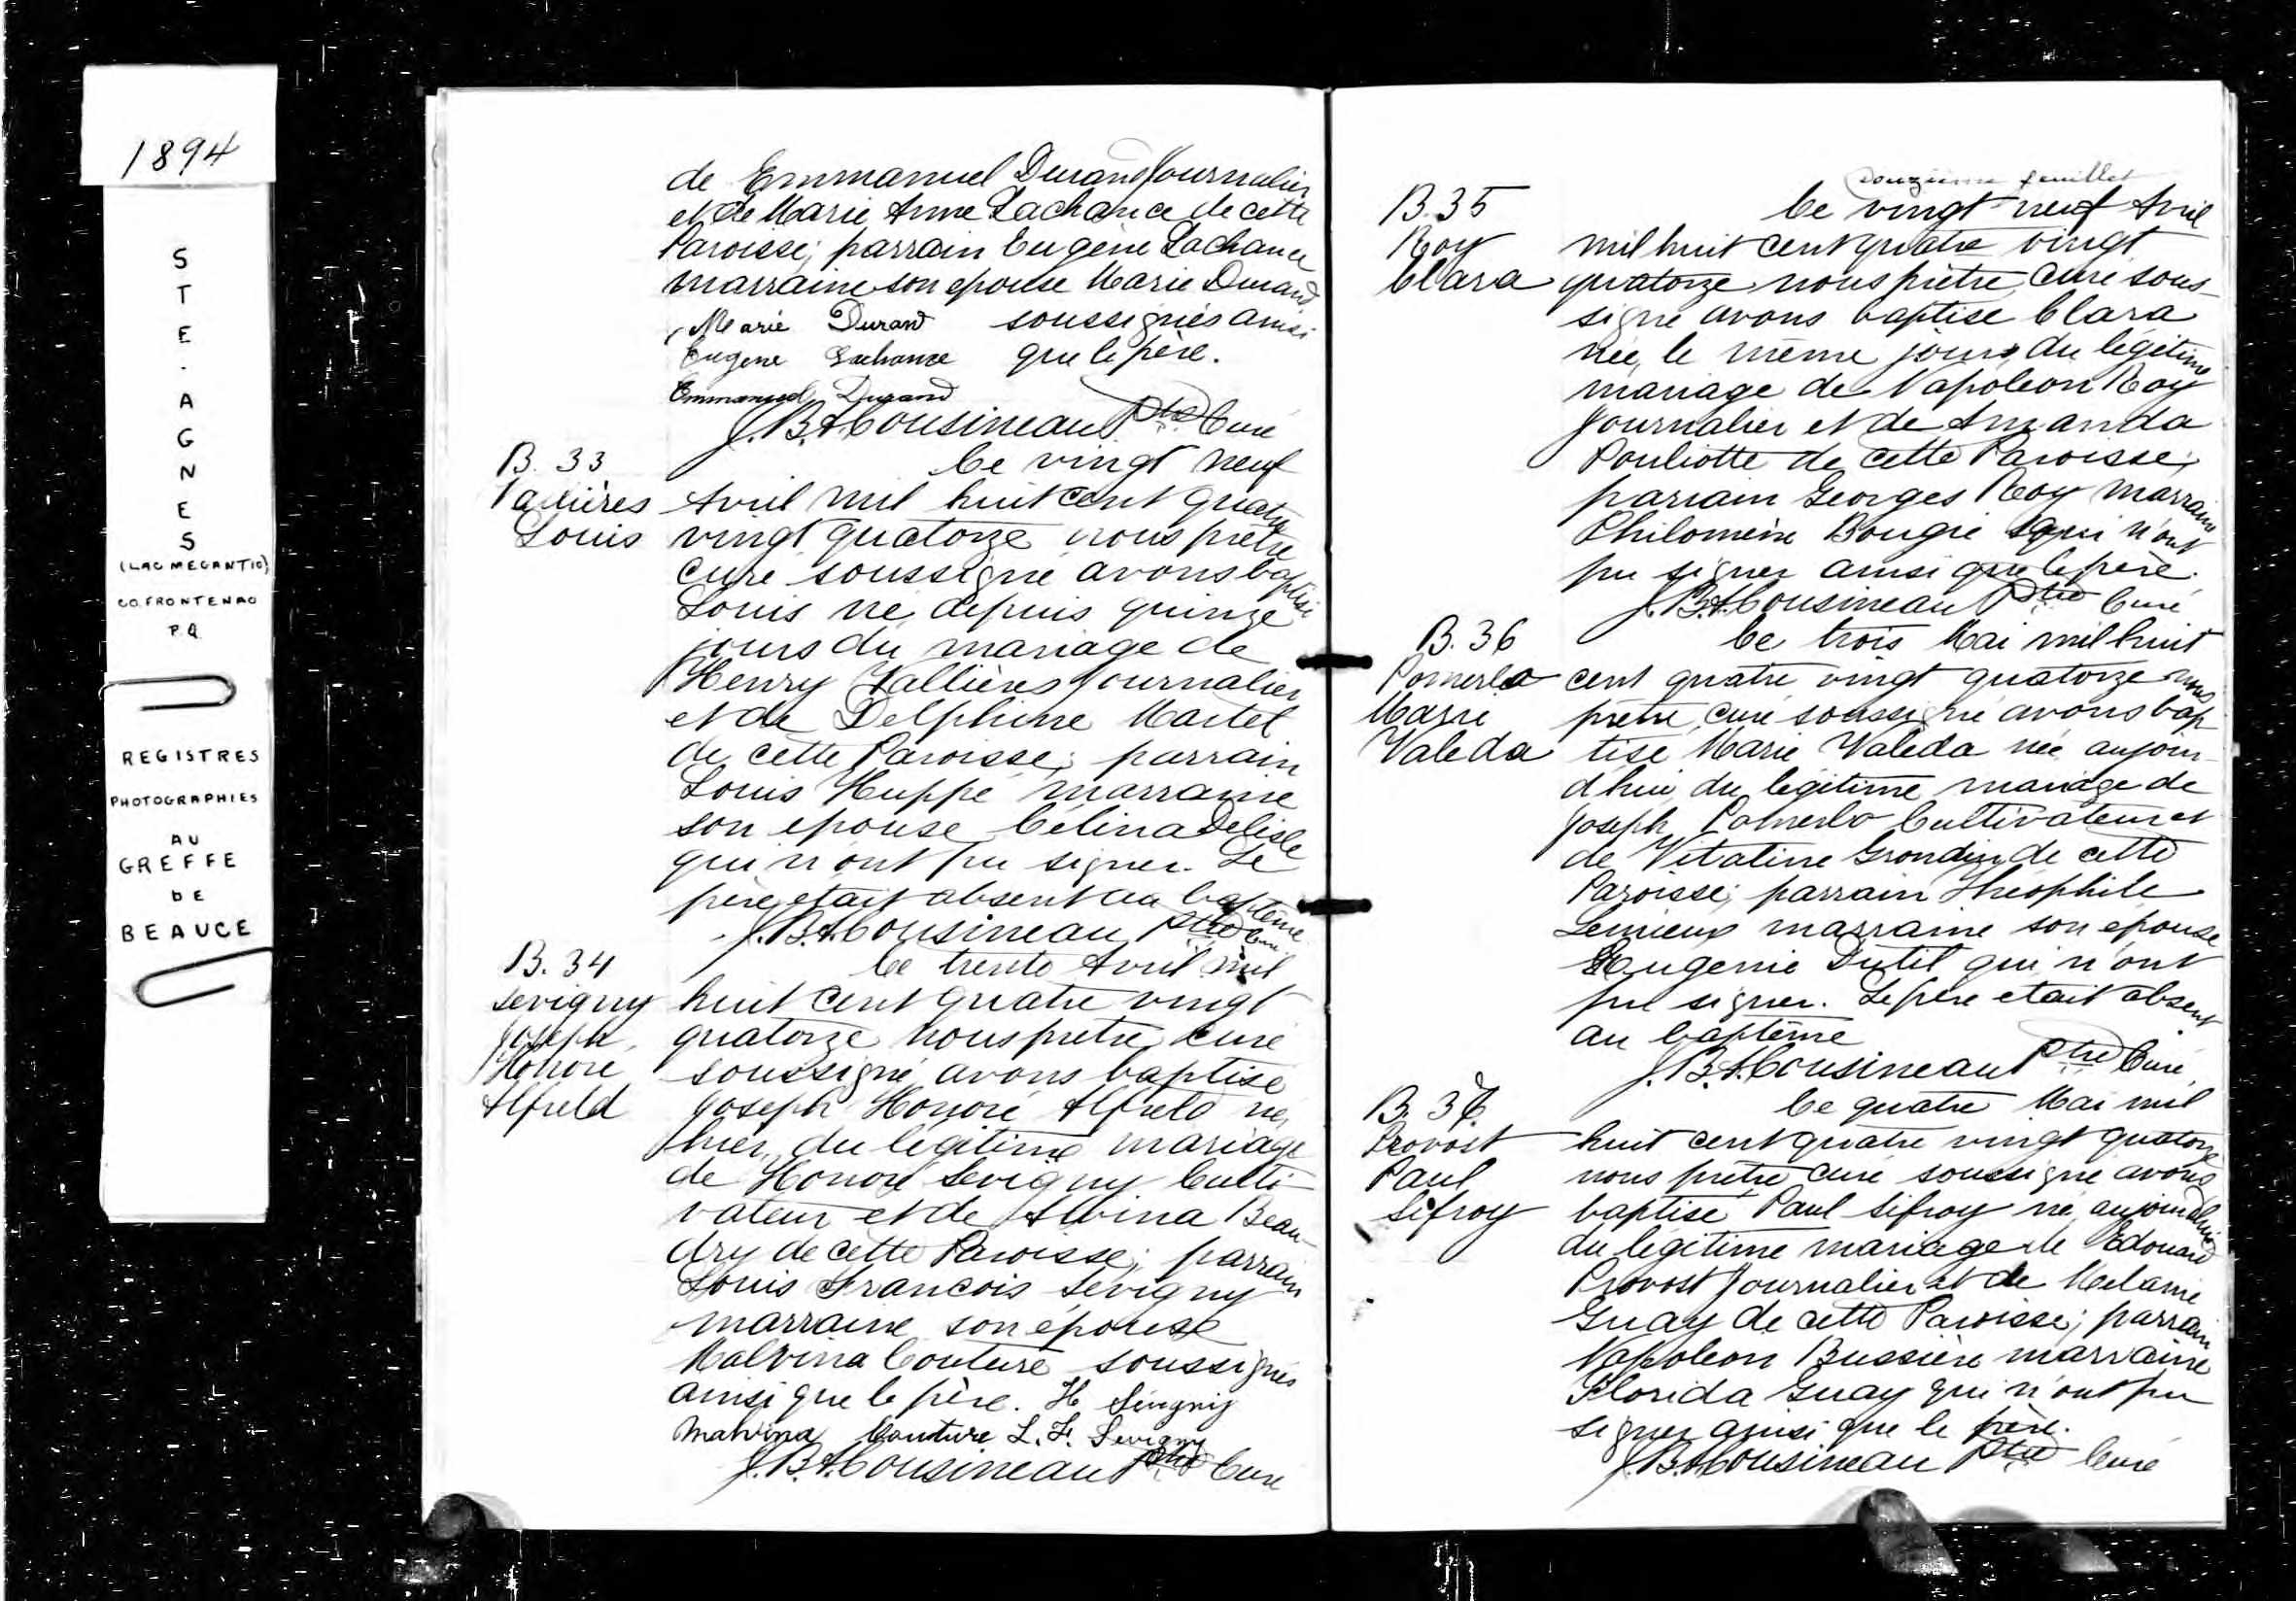 1894
STE. AGNES
(LAC MEGANTIC)
CO. FRONTENAC
P.Q.
REGISTRES
PHOTOGRAPHIES
AU
GREFFE
DE
BEAUCE
de Emmanuel Durand Journalier
et de Marie Anne Lachance de cette
Paroisse; parrain Eugène Lachance
marraine son epouse Marie Durand
Marie Durand soussignés ainsi
Eugene Lachance que le père.
Emmanuel Durand
J.B.A. Cousineau Ptre Curé
B. 33 Ce vingt neuf
Vallières Avril mil huit cent quatre
Louis vingt quatorze nous prêtre
curé soussigné avons baptisé
Louis né depuis quinze
jours du mariage de
Henry Vallières Journalier
et de Delphine Martel
de cette Paroisse; parrain
Louis Huppé marraine
son epouse Celina Delisle
qui n'ont pu signer. Le
père etait absent au baptême
J.B.A. Cousineau Ptre Curé
B. 34 Ce trente Avril mil
Sevigny huit cent quatre vingt
Joseph quatorze nous pretre curé
Honoré soussigné avons baptise
Alfreld Joseph Honoré Alfreld né,
hier, du légitime mariage
de Honoré Sevigny Culti-
vateur et de Alvina Beau-
dry de cette Paroisse; parrain
Louis François Sevigny
marraine son épouse
Malvina Couture soussignés
ainsi que le père. H Sévigny
Malvina Couture L. F. Sevigny
J.B.A. Cousineau Ptre Curé
Douzième feuillet
B. 35 Ce vingt neuf Avril
Roy mil huit cent quatre vingt
Clara quatorze nous prêtre, curé sous-
signé avons baptise Clara
née, le même jour, du légitime
mariage de Napoleon Roy
Journalier et de Amanda
Pouliotte de cette Paroisse;
parrain Georges Roy marraine
Philomène Bougie qui n'ont
pu signer ainsi que le père.
J.B.A. Cousineau Ptre Curé
B. 36 Ce trois Mai mil huit
Pomerlo cent quatre vingt quatorze nous
Marie pretre, curé soussigné avons bap
Valeda tisé Marie Valeda née aujour-
dhui, du légitime mariage de
Joseph Pomerlo Cultivateur et
de Vitaline Grondin de cette
Paroisse; parrain Théophile
Lemieux marraine son epouse
Eugenie Dutil qui n'ont
pu signer. Le père etait absent
au baptême
J.B.A. Cousineau Ptre Curé,
B. 37. Ce quatre Mai mil
Provost huit cent quatre vingt quatorze
Paul nous prêtre curé soussigné avons
Sifroy baptisé Paul Sifroy né, aujourdhui
du legitime mariage de Edouard
Provost Journalier et de Melanie
Guay de cette Paroisse; parrain
Napoleon Bussière marraine
Florida Guay qui n'ont pu
signer ainsi que le père.
J.B.A. Cousineau Ptre Curé